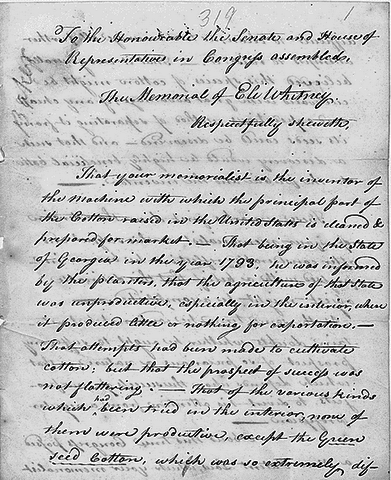 319
1
To the Honourable the Senate and House of
Representatives in Congress assembled,
The Memorial of Eli Whitney
Respectfully sheweth,
That your memorialist is the inventor of
the machine with which the principal part of
the Cotton raised in the United States is cleaned &
prepared for market. — That being in the State
of Georgia in the year 1793, he was informed
by the planters, that the agriculture of that State
was unproductive, especially in the interior, where
it produced little or nothing for exportation. —
That attempts had been made to cultivate
cotton; but that the prospect of success was
not flattering. — That of the various kinds
which had been tried in the interior, none of
them were productive, except the Green
seed Cotton, which was so extremely dif-